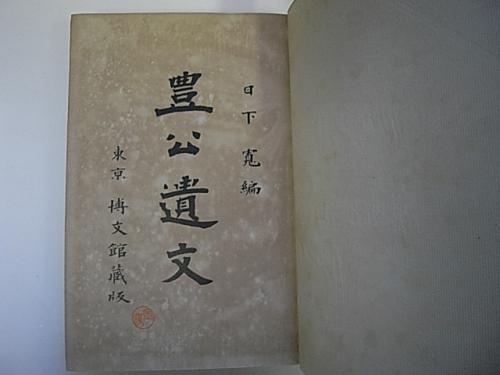 日下寬編
豊公遺文
東京博文館蔵版